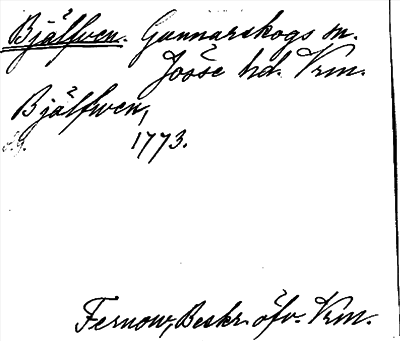 Bjälfven. Gunnarskogs sn.
Jösse hd. Vrm.
Bjälfwen,
1773.
Fernow, Beskr. öfv. Vrm.